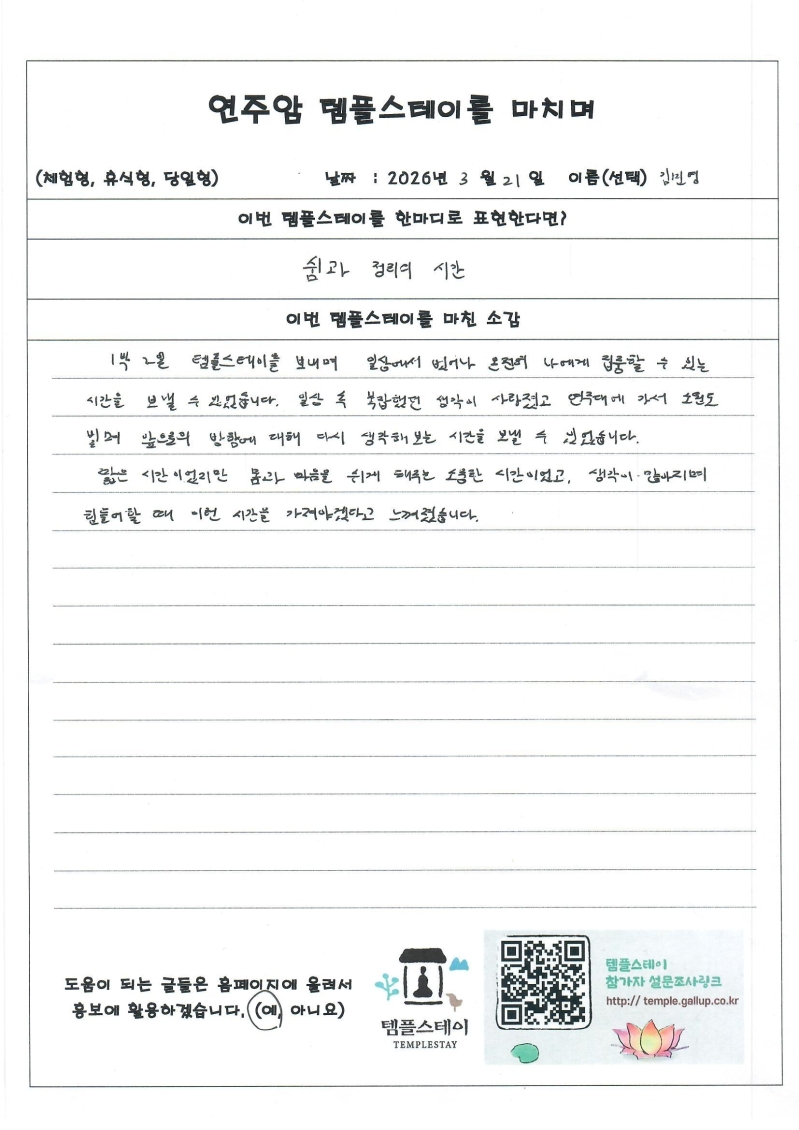 연주암 템플스테이를 마치며
(체험형, 휴식형, 당일형) 날짜 : 2026년 3월 21일 이름(선택) 김진영
이번 템플스테이를 한마디로 표현한다면?
쉼과 정리의 시간
이번 템플스테이를 마친 소감
1박 2일 템플스테이를 보내며 일상에서 벗어나 온전히 나에게 집중할 수 있는
시간을 보낼 수 있었습니다. 일상 속 복잡했던 생각이 사라졌고 연주대에 가서 소원도
빌며 앞으로의 방향에 대해 다시 생각해보는 시간을 보낼 수 있었습니다.
짧은 시간이었지만 몸과 마음을 쉬게 해주는 소중한 시간이었고, 생각이 많아지며
힘들어할 때 이런 시간을 가져야겠다고 느껴졌습니다.
도움이 되는 글들은 홈페이지에 올려서
홍보에 활용하겠습니다. (예, 아니요)
템플스테이
TEMPLESTAY
템플스테이
참가자 설문조사링크
http:// temple.gallup.co.kr